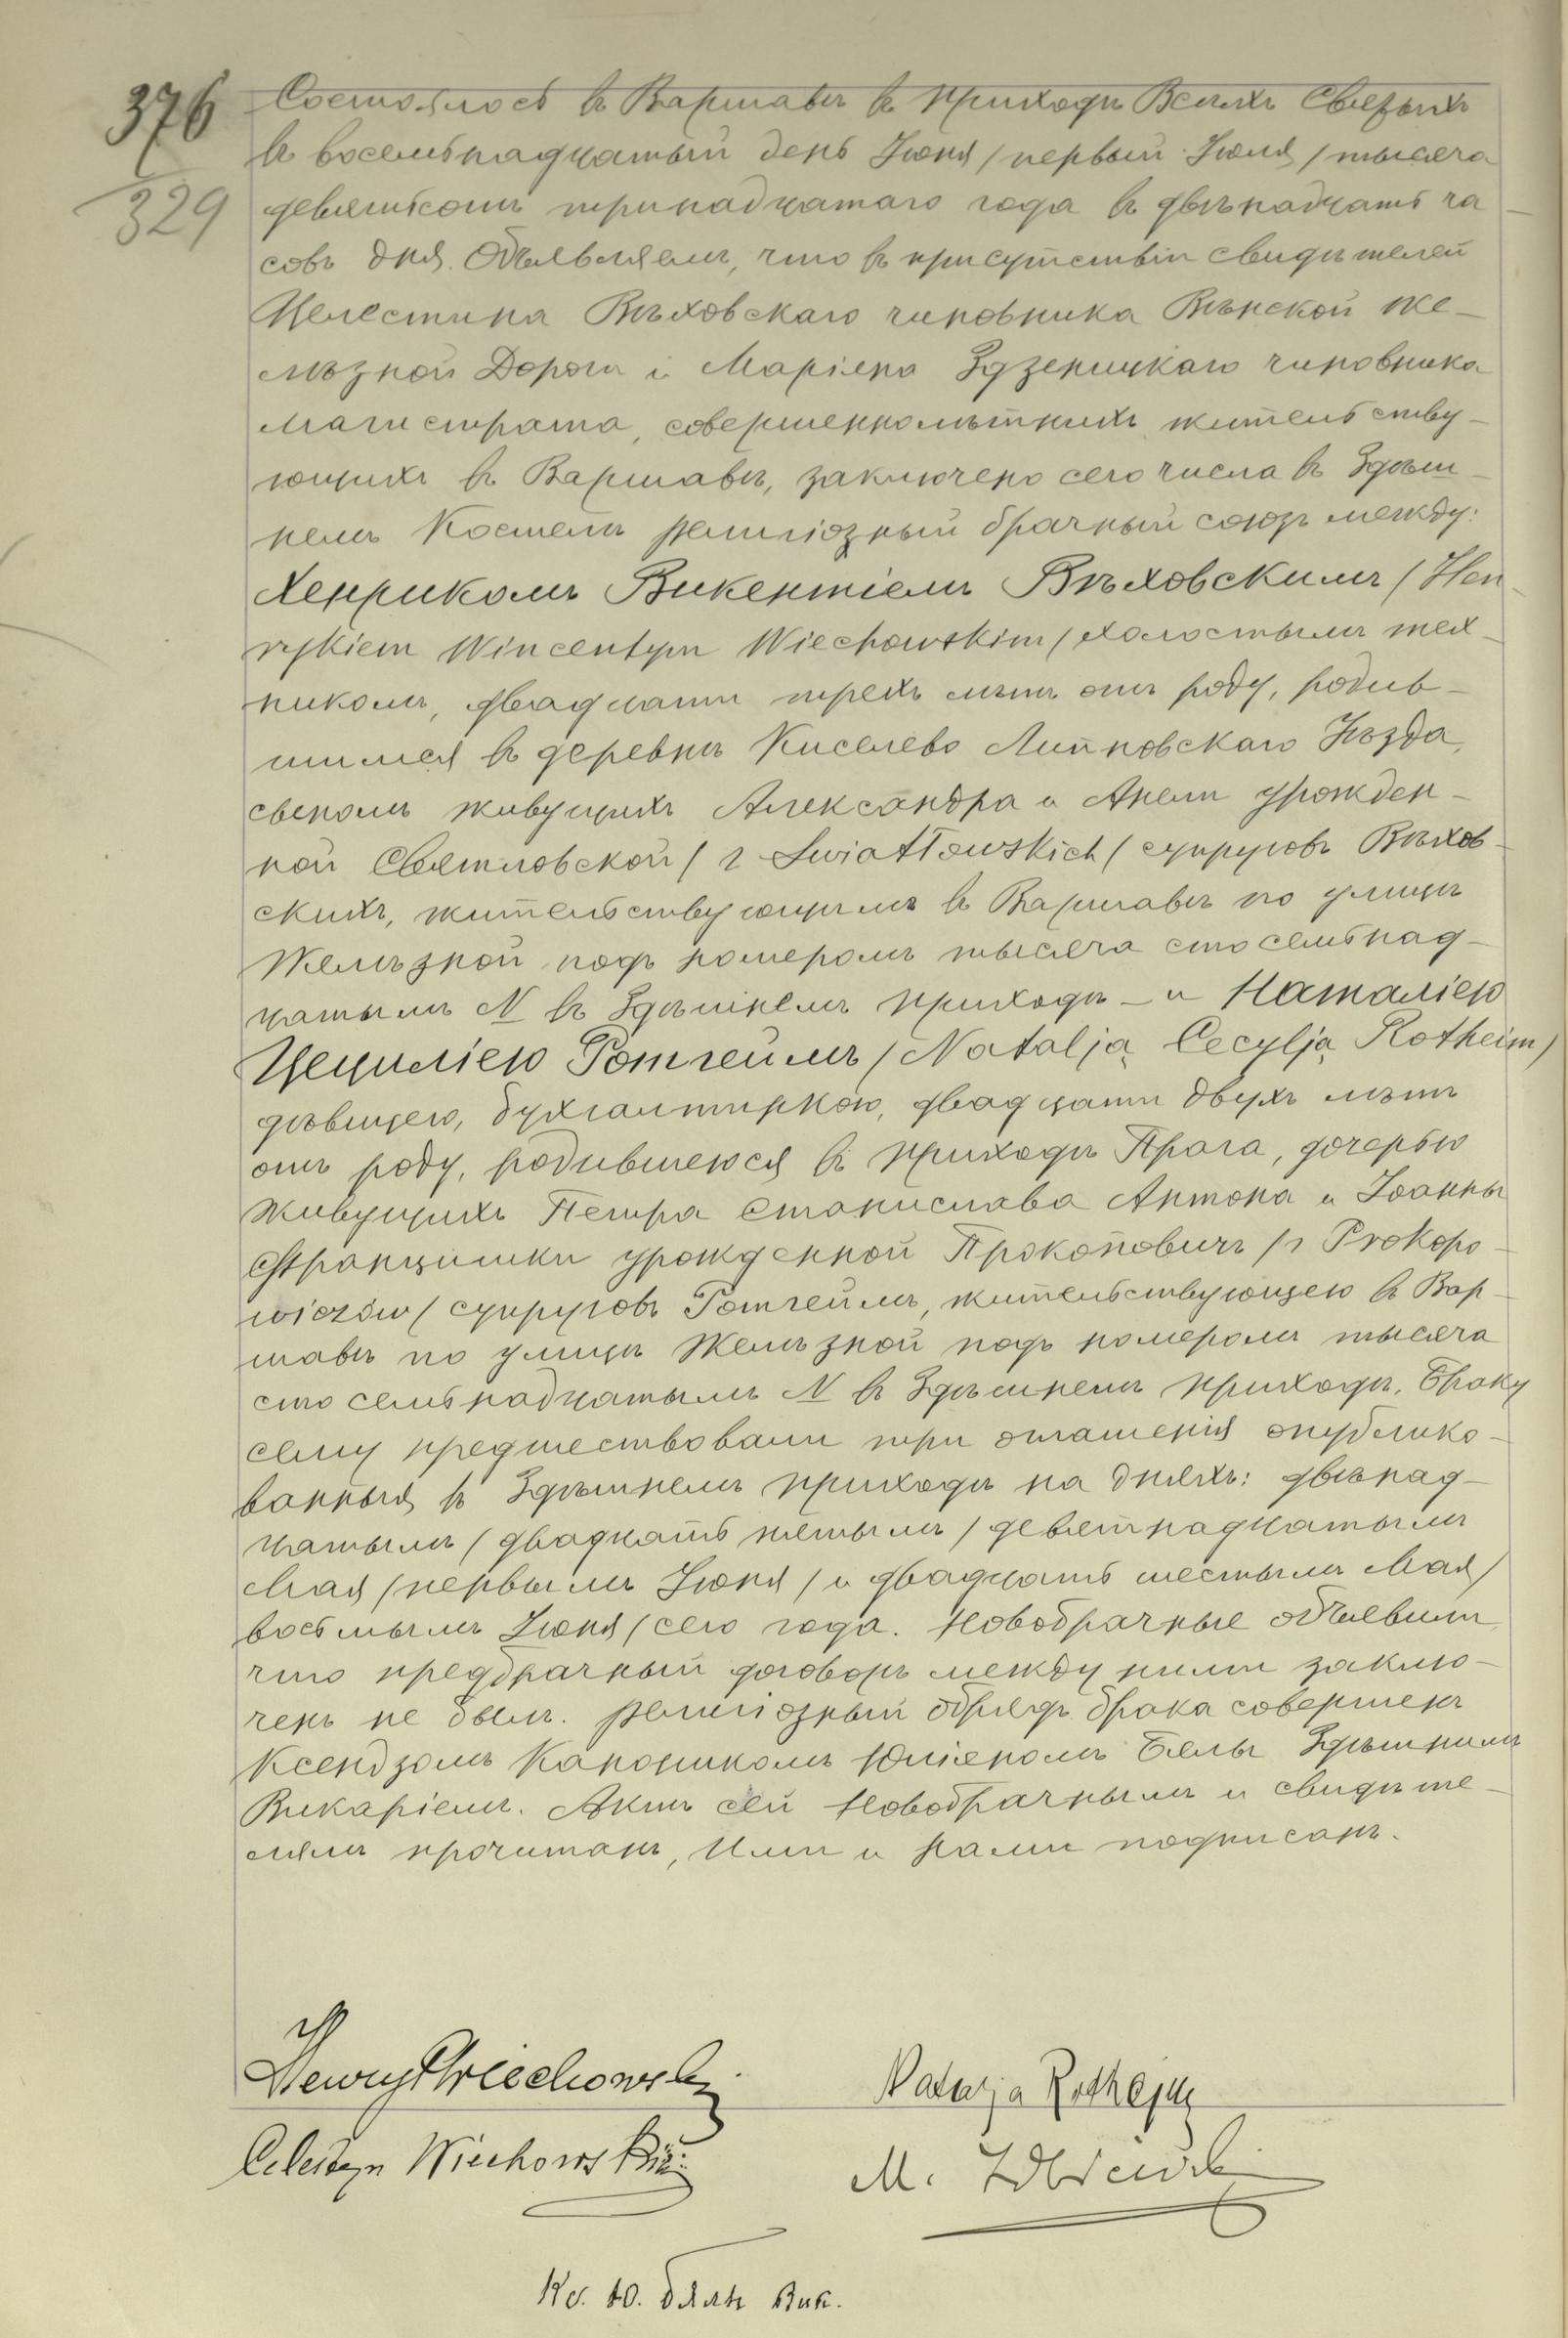 376
329
Состоялось въ Варшавѣ въ приходѣ Всѣхъ Святыхъ
въ восемьнадцатый день Іюня / первый Іюля / тысяча
девятьсотъ тринадцатаго года въ двѣнадцать ча
совъ дня. Объявляемъ, что въ присутствіи свидѣтелей
Целестина Вѣховскаго чиновника Вѣнской же-
лѣзной Дороги и Маріяна Здзеницкаго чиновника
Магистрата, совершеннолѣтнихъ жительству-
ющихъ въ Варшавѣ, заключено сего числа въ Здѣш-
немъ Костелѣ религіозный брачный союзъ между:
Хенрикомъ Викентіемъ Вѣховскимъ / Hen-
rykiem Wincentym Wiechowskim / холостымъ тех-
никомъ, двадцати трехъ лѣтъ отъ роду, родив-
шимся въ деревнѣ Киселево Липновскаго Уѣзда,
сыномъ живущихъ Александра и Анели урожден-
ной Святловской / z Swiatłowskich / супруговъ Вѣхов-
скихъ, жительствующимъ въ Варшавѣ по улицѣ
Желѣзной подъ номеромъ тысяча сто семьнад-
цатымъ N въ Здѣшнемъ приходѣ – и Наталіею
Цециліею Ротгеймъ / Natalją Cecylją Rotheim /
дѣвицею, бухгалтиркою, двадцати двухъ лѣтъ
отъ роду, родившеюся въ приходѣ Прага, дочерью
живущихъ Петра Станислава Антона и Іоанны
Францишки урожденной Прокоповичъ / z Prokopo-
wiczów / супруговъ Ротгеймъ, жительствующею въ Вар-
шавѣ по улицѣ Желѣзной подъ номеромъ тысяча
сто семьнадцатымъ N въ Здѣшнемъ приходѣ. Браку
сему предшествовали три оглашенія опублико-
ванныя въ Здѣшнемъ приходѣ на дняхъ: двѣнад-
цатымъ / двадцать пятымъ / девятнадцатымъ
Мая / первымъ Іюня / и двадцать шестымъ Мая /
восьмымъ Іюня / сего года. Новобрачные объявили,
что предбрачный договоръ между ними заклю-
ченъ не былъ. Религіозный обрядъ брака совершенъ
Ксендзомъ Каноникомъ Юліяномъ Бялы Здѣшнимъ
Викаріемъ. Актъ сей Новобрачнымъ и свидѣте-
лямъ прочитанъ, Ими и Нами подписанъ.
Henryk Wiechowski
Natalja Rothejm
Celestyn Wiechowski
M.
Кс. Ю. Бялы Вик.